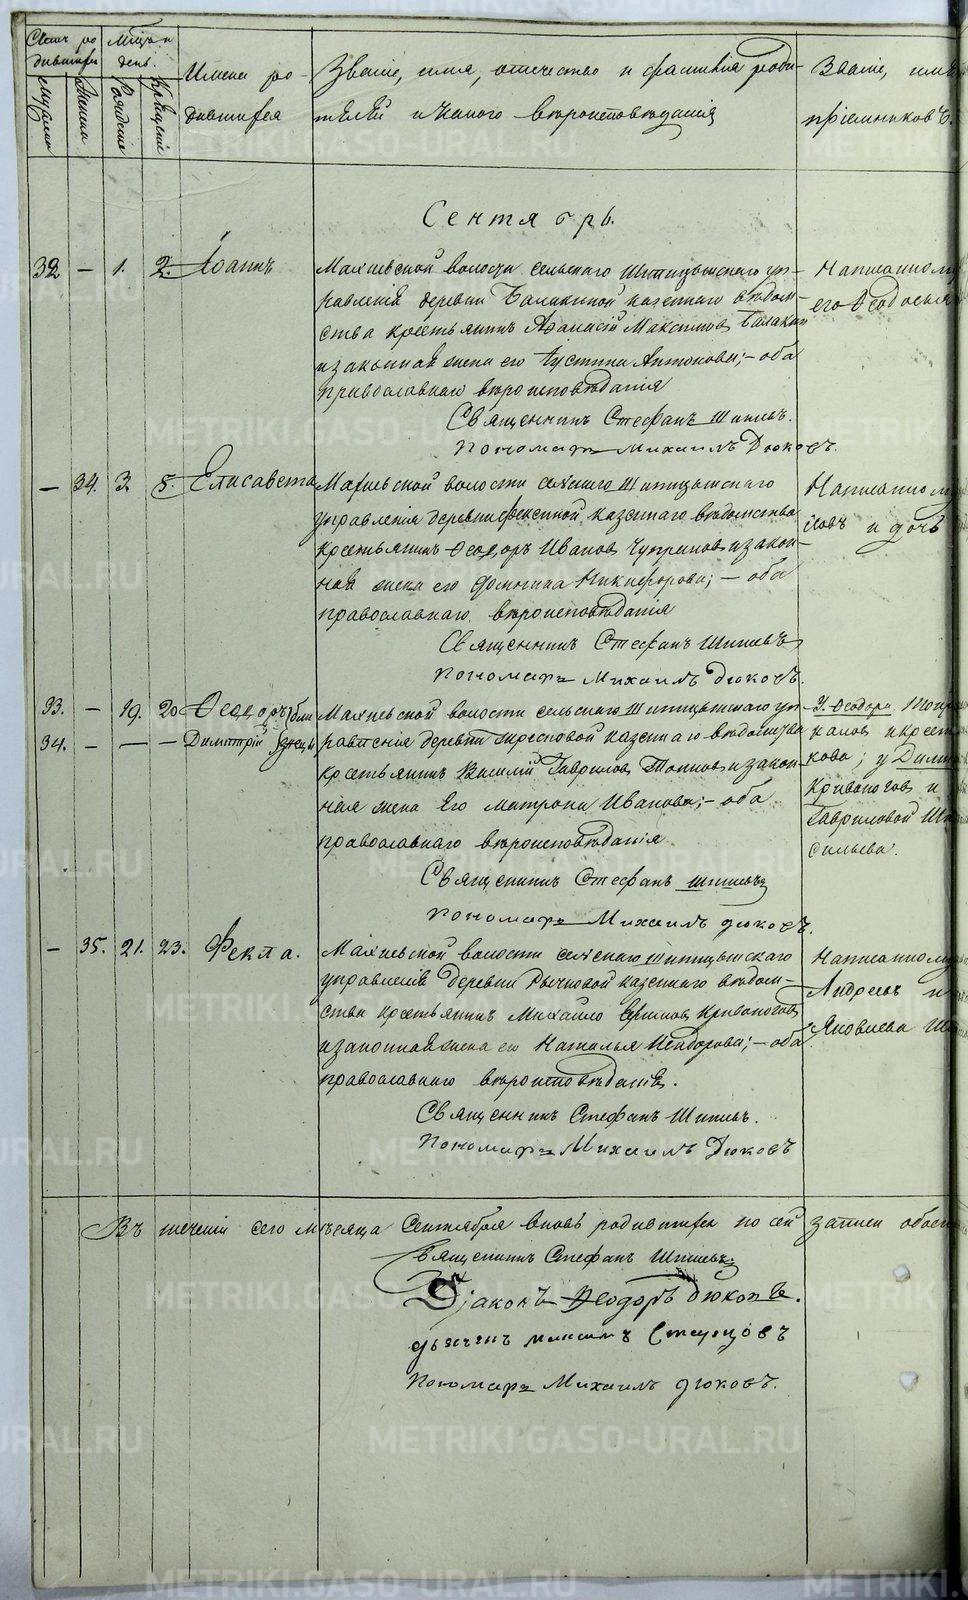 Счетъ ро
дившихся
Мѣсяцъ и
день.
мужска
женска
Рожденіе
Крещеніе
Имена ро-
дившихся
Званіе, имя, отечество и фамилія роди-
телей и какого вѣроисповѣданія
Званіе, имя
пріемниковъ.
Сентябрь.
32 — 1. 2. Іоаннъ
Махневской волости сельскаго Шипицынскаго уп-
равленія деревни Балакиной казеннаго вѣдом-
ства крестьянинъ Аѳанасій Максимовъ Балакин
и законная жена его Іустина Антонова; — оба
православнаго вѣроисповѣданія
Священникъ Стефанъ Шишевъ.
Пономарь Михаилъ Дюковъ.
Написанном
его Ѳедосья
— 34. 3. 5. Елисавета
Махневской волости сельскаго Шипицынскаго
управленія деревни казеннаго вѣдомства
крестьянинъ Ѳеодоръ Ивановъ и закон-
ная жена его Домнина Никифорова; — оба
православнаго вѣроисповѣданія
Священникъ Стефанъ Шишевъ
Пономарь Михаилъ Дюковъ.
Написанном
и дочь
33. — 19. 20 Ѳеодоръ бли
34. — — — Димитрій знецы
Махневской волости сельскаго Шипицынскаго уп-
равленія деревни казеннаго вѣдомства
крестьянинъ Василій Гавриловъ и закон-
ная жена его Матрона Иванова; — оба
православнаго вѣроисповѣданія
Священникъ Стефанъ Шишевъ
Пономарь Михаилъ Дюковъ.
У Ѳеодора
и крест
кова; у Дими
Кривоногов и
Гавриловой
сильева.
— 35. 21. 23. Ѳекла.
Махневской волости сельскаго Шипицынскаго
управленія деревни Рычковой казеннаго вѣдом-
ства крестьянинъ Михаило Кривоногов
и законная жена его Наталья; — оба
православнаго вѣроисповѣданія.
Священникъ Стефанъ Шишевъ.
Пономарь Михаилъ Дюковъ
Написанном
Андреевъ и
Яковлева
Въ теченіи сего мѣсяца Сентября вновь родившихся по сей записи обоего
Священникъ Стефанъ Шишевъ
Діаконъ Ѳеодоръ Дюковъ.
дьячекъ Максимъ Старцовъ
Пономарь Михаилъ Дюковъ.
METRIKI.GASO-URAL.RU